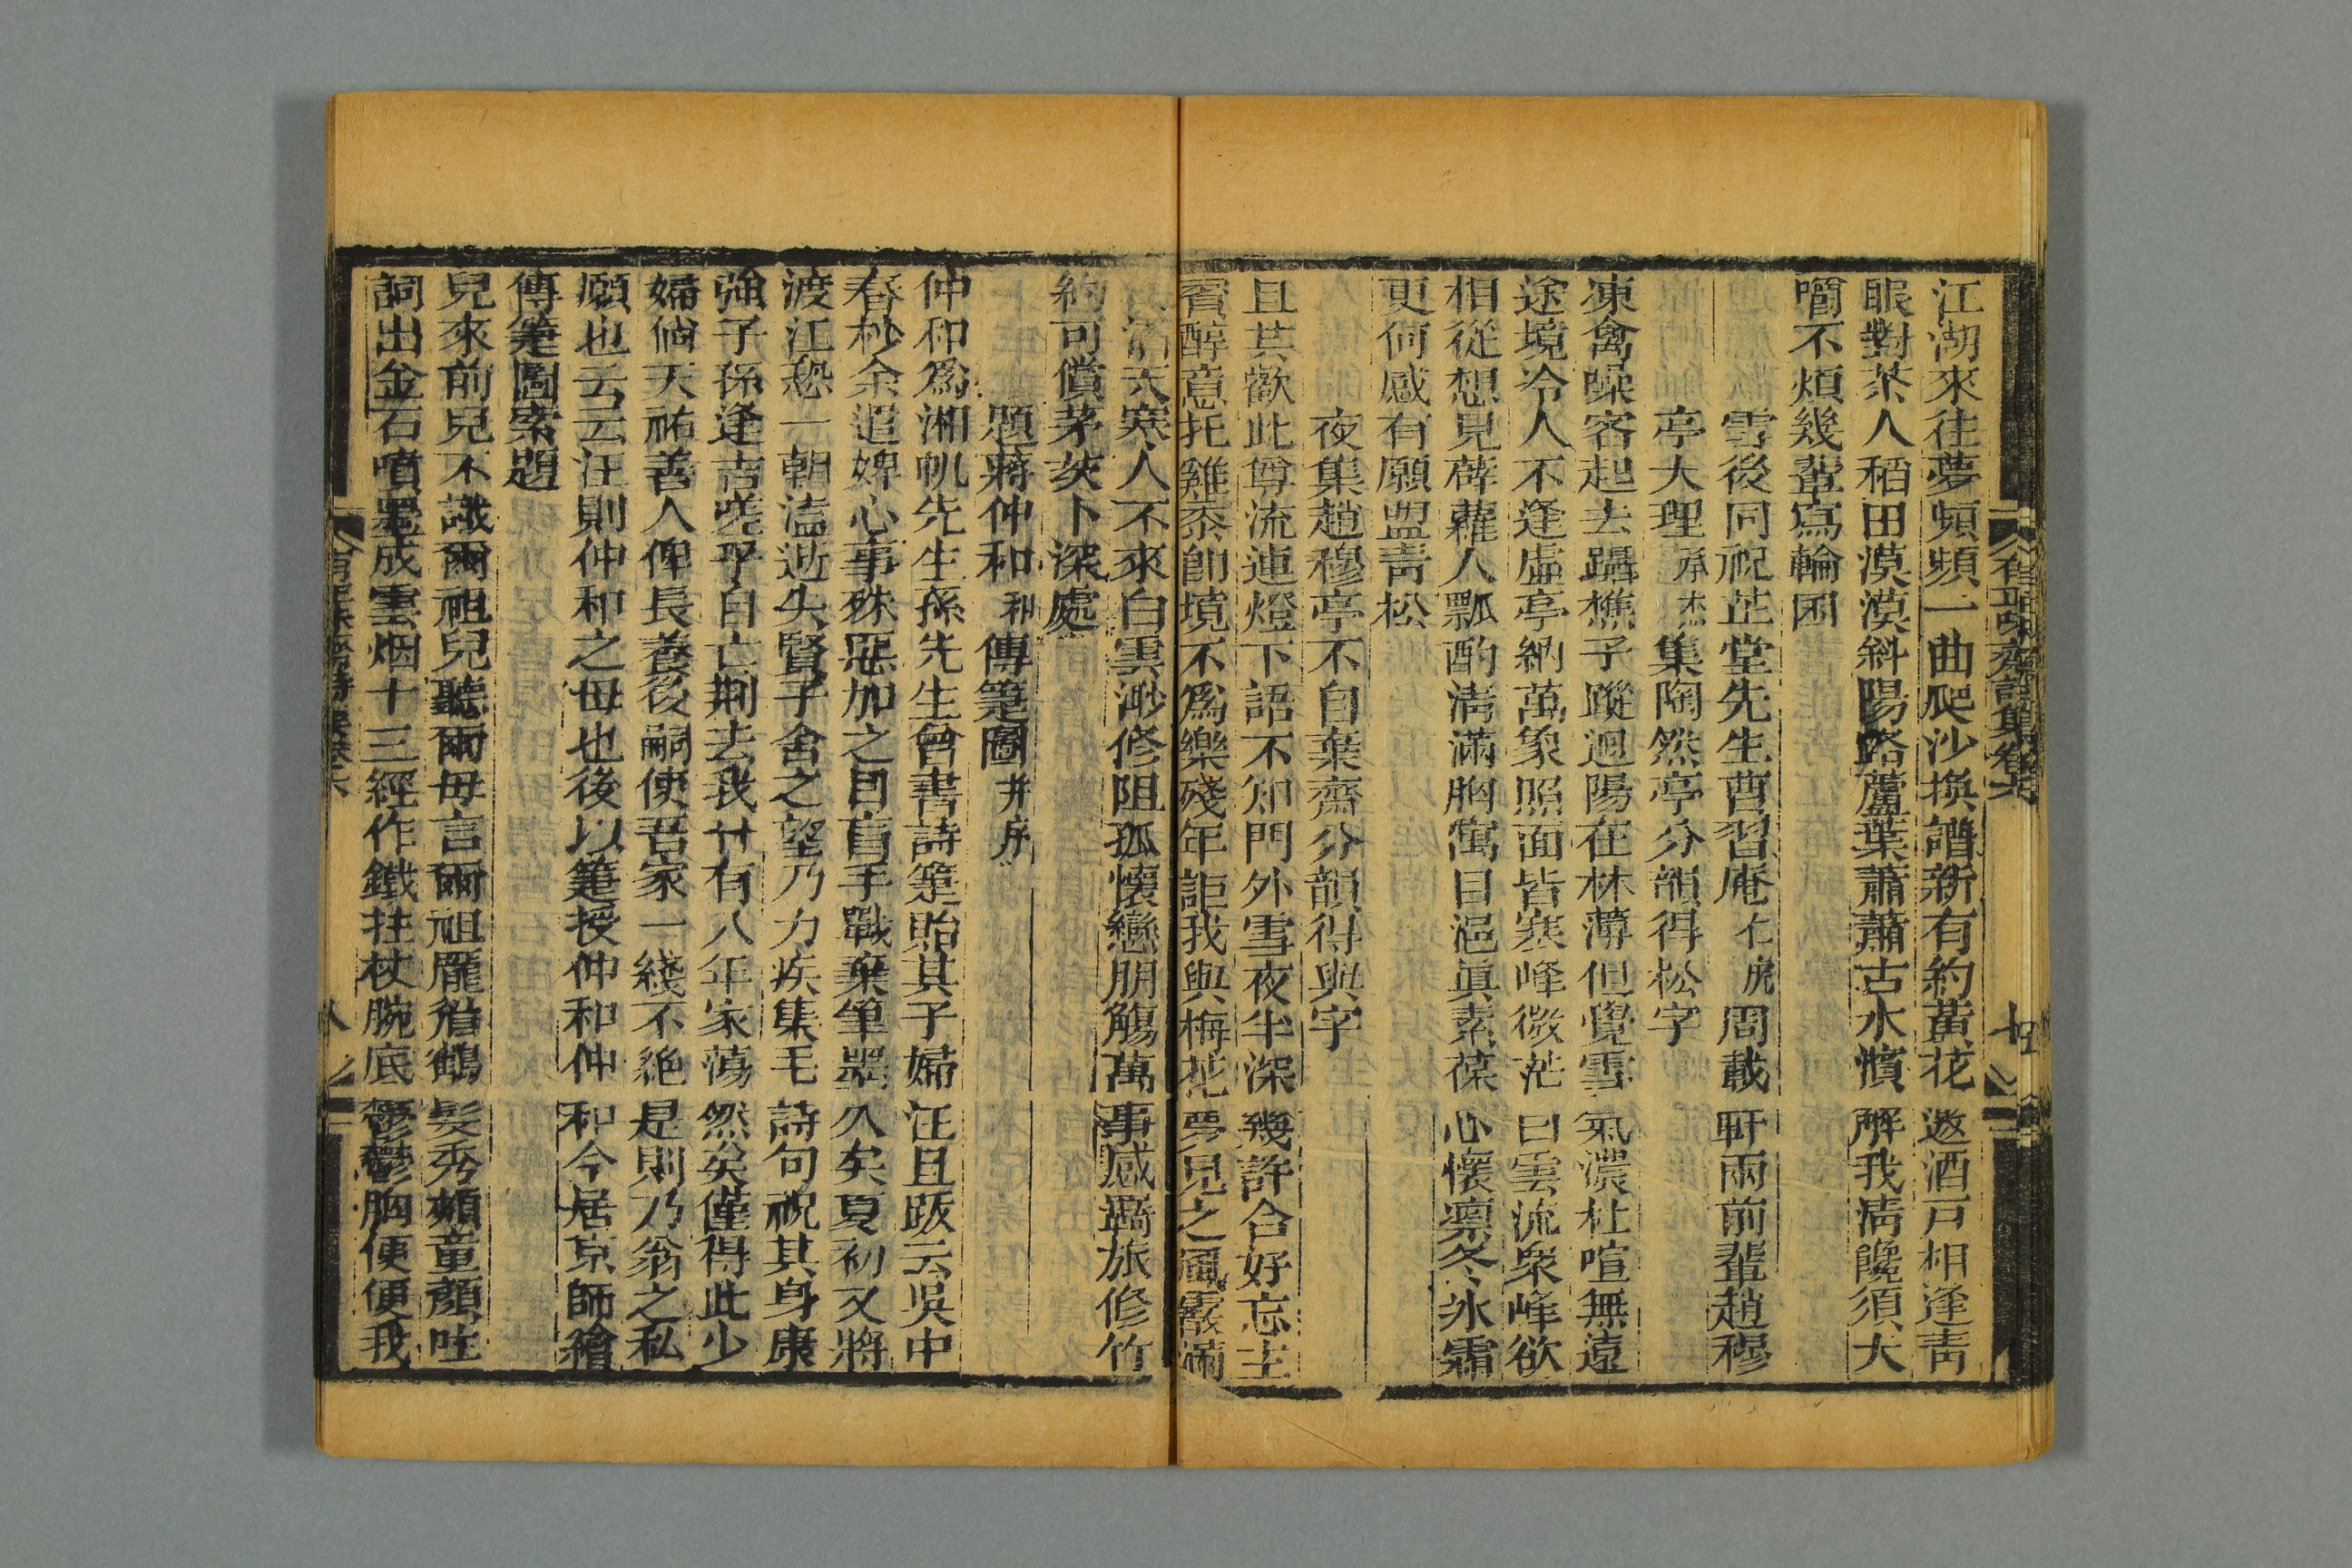 江湖來往夢頻頻一曲爬沙換譜新有約黃花邀酒戸相逢靑
眼對茶人稻田漠漠斜陽路蘆葉蕭蕭古水濱解我淸饞須大
嚼不煩幾輩寫輪囷
雪後同祝芷堂先生曹習庵仁虎周載軒兩前輩趙穆
亭大理集陶然亭分韻得松字
凍禽噪客起去躡樵子蹤迴陽在林薄但覺雪氣濃杜喧無遠
途境冷人不逢虛亭納萬象照面皆寒峰微茫白雲流衆峰欲
相從想見薜蘿人瓢酌淸滿胸寓目浥眞素葆心懷凛冬冰霜
更何感有願盟靑松
夜集趙穆亭不自棄齋分韻得與字
且共歡此尊流連燈下語不知門外雪夜半深幾許合好忘主
賓醉意托雞黍卽境不爲樂殘年詎我與梅花夢見之風嚴滿
天寒人不來白雲渺修阻孤懷戀朋觴萬事感羈旅修竹
約可償茅茨卜深處
題蔣仲和和傳箑圖并序
仲和爲湘帆先生孫先生曾書詩箑貽其子婦汪且跋云吳中
春杪余追婢心事殊惡加之目盲手戰棄筆器久矣夏初又將
渡江恐一朝溘逝失賢子舍之望乃力疾集毛詩句祝其身康
強子孫逢吉嗟乎自亡荆去我廿有八年家蕩然矣僅得此少
婦倘天祐善人俾長養後嗣使吾家一綫不絕是則乃翁之私
願也云云汪則仲和之母也後以箑授仲和仲和今居京師繪
傳箑圖索題
兒來前兒不識爾祖兒聽爾母言爾祖龐眉鶴髮秀頰童顏吐
詞出金石噴墨成雲烟十三經作鐵拄杖腕底鬱鬱胸便便我